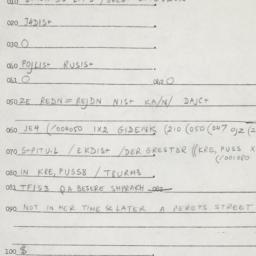 020 JADIST
030 O
040 POJLIST RUSIST
041 O 042 O
050 ZE REDN = REJDN NIST KA/N/ DAJC+
060 JE4 (/004050 1X2 GIDENK (210 (050 (047 OJZ (2
070 S+PITUL / EKDIST / DER GRESTBR // KRE, PUSS X
(/001080
080 IN KRE, PUSSB / TBURMB
081 TFISB DA BESERE SHPRAKH 082
090 NOT IN HER TIME & LATER A PERETS STREET
100 $